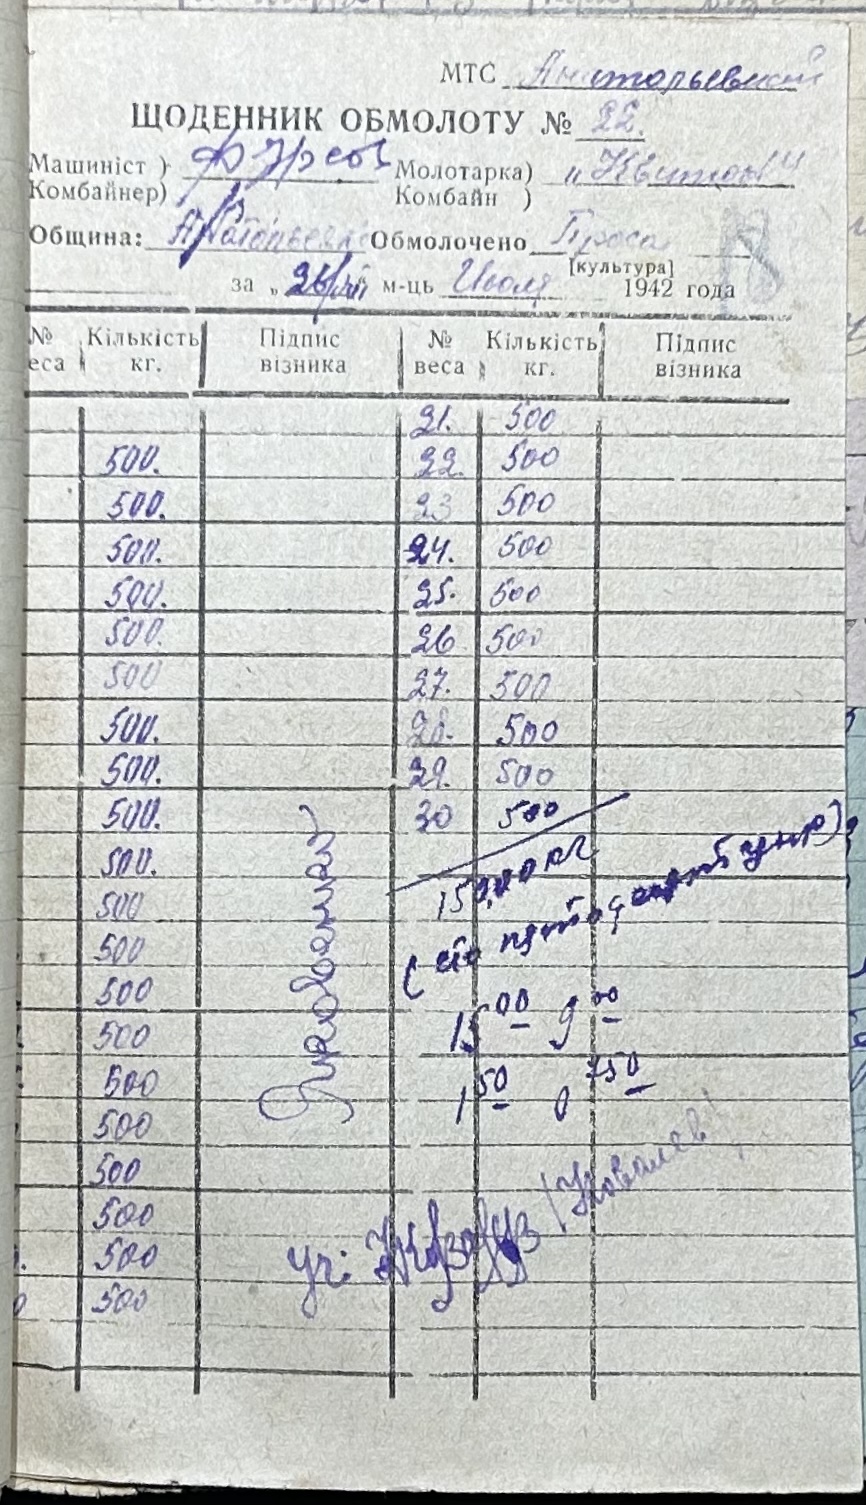 МТС Анатольевский
ЩОДЕННИК ОБМОЛОТУ № 22.
Машиніст ) Фурсов Молотарка)
Комбайнер) Комбайн )
Община: Обмолочено Проса
[культура]
за „ м-ць Июля 1942 года
№ Кількість Підпис № Кількість Підпис
еса кг. візника веса кг. візника
21. 500
500. 22. 500
500. 23 500
500. 24. 500
500. 25. 500
500. 26 500
500 27. 500
500. 28. 500
500. 29. 500
500. 30 500
500.
500 кг
500 (сто
500
500 15 00 9 00
500 1 50 0 750
500
500
500 /Ковалев/
500 уч:
500